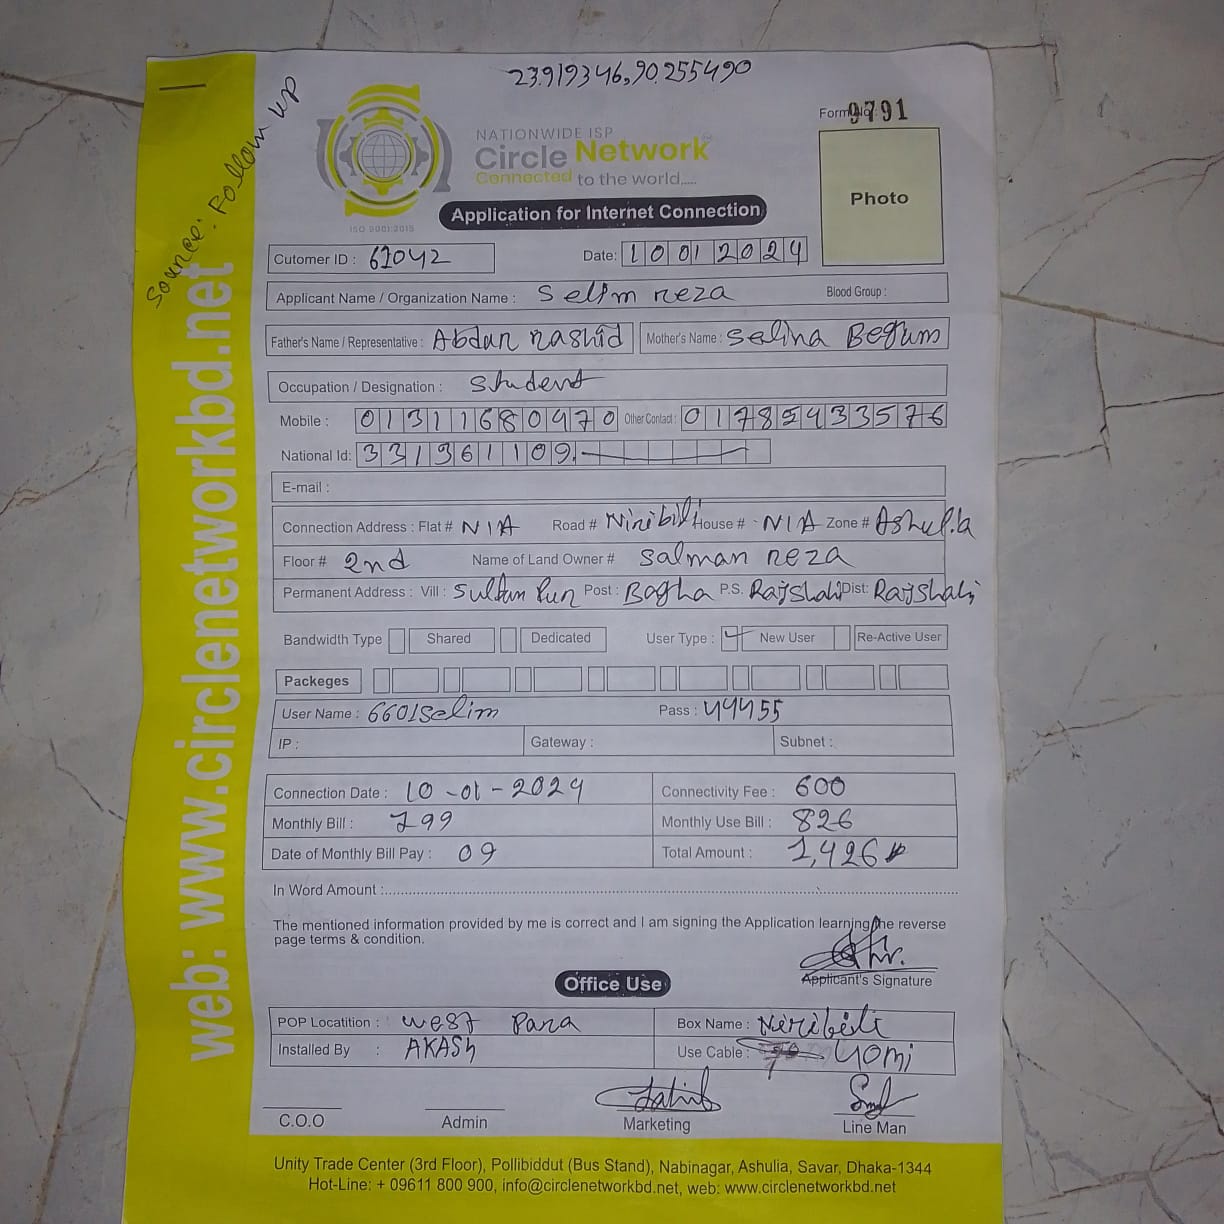 23.919346,90.255490
Source: Follow up
Form No: 9791
NATIONWIDE ISP
Circle Network
Connected to the world.....
ISO 9001:2015
Photo
Application for Internet Connection
Cutomer ID : 61042 Date: 10012024
Applicant Name / Organization Name : Selim reza Blood Group :
Father's Name / Representative : Abdur rashid Mother's Name : Selina Begum
Occupation / Designation : Student
Mobile : 01311680970 Other Contact : 01785433576
National Id: 3313611109
E-mail :
Connection Address : Flat # N/A Road # Niribili House # N/A Zone # Ashulia
Floor # 2nd Name of Land Owner # Salman reza
Permanent Address : Vill : Sultan Pur Post : Bagha P.S. Rajshahi Dist: Rajshahi
Bandwidth Type Shared Dedicated User Type : New User Re-Active User
Packeges
User Name : 6601Selim Pass : 44455
IP : Gateway : Subnet :
Connection Date : 10-01-2024 Connectivity Fee : 600
Monthly Bill : 799 Monthly Use Bill : 826
Date of Monthly Bill Pay : 09 Total Amount : 1,426
In Word Amount :
The mentioned information provided by me is correct and I am signing the Application learning the reverse
page terms & condition.
Applicant's Signature
Office Use
POP Locatition : West Para Box Name : Niribili
Installed By : AKASh Use Cable : 40mi
C.O.O Admin Marketing Line Man
Unity Trade Center (3rd Floor), Pollibiddut (Bus Stand), Nabinagar, Ashulia, Savar, Dhaka-1344
Hot-Line: + 09611 800 900, info@circlenetworkbd.net, web: www.circlenetworkbd.net
web: www.circlenetworkbd.net